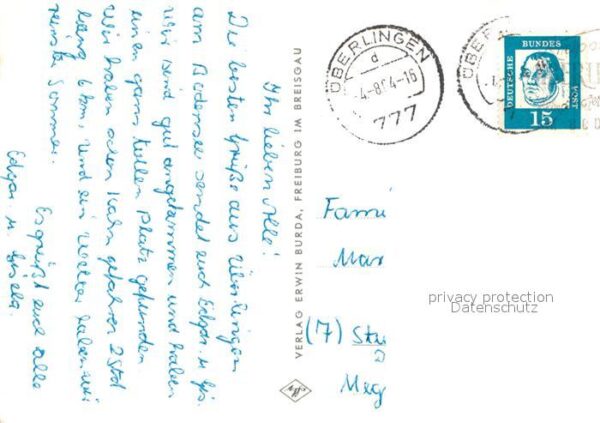 Ihr lieben Alle!
Die besten Grüße aus Überlingen
am Bodensee sendet euch Edgar u. Gis.
Wir sind gut angekommen und haben
einen ganz tollen Platz gefunden
Wir haben schon Kahn gefahren 2 Std
lang 6 km, und ein Wetter haben wir
reinster Sommer.
Es grüßt euch alle
Edgar u. Gisela.
VERLAG ERWIN BURDA, FREIBURG IM BREISGAU
ÜBERLINGEN
d
-4-8 64-16
777
ÜBER
DEUTSCHE
BUNDES
POST
15
Fami
Max
privacy protection
Datenschutz
(7) Stu
D
Meg